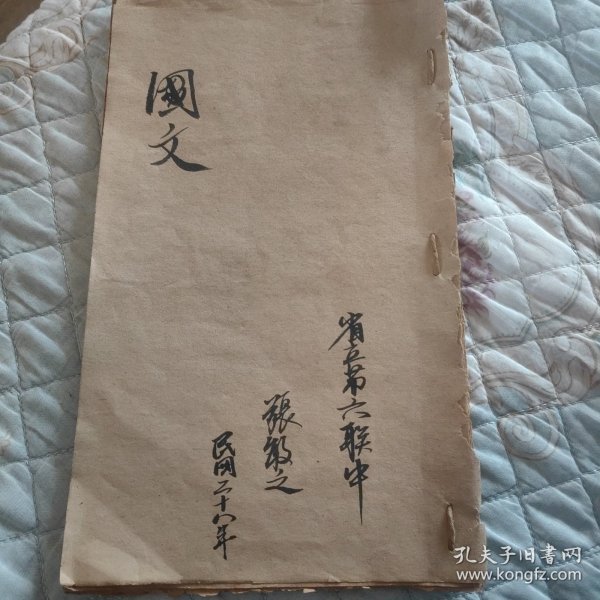 國文
省立第六联中
張敏之
民国二十八年
孔夫子旧书网
www.kongfz.com